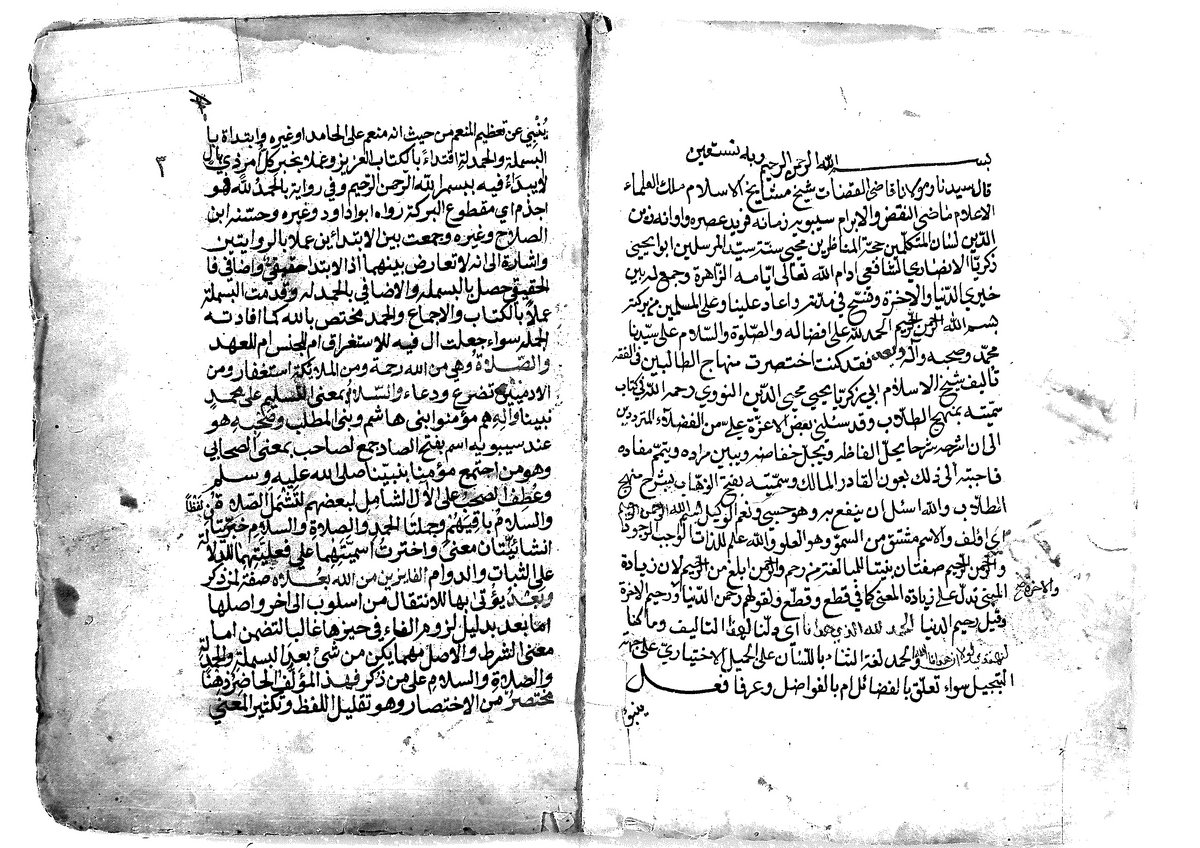 بســــم الله الرحمن الرحيم وبه نستعين
قال سيدنا ومولانا قاضي القضات شيخ مشايخ الاسلام ملك العلماء
الاعلام ماضي النقض والابرام سيبويه زمانه فريد عصره واوانه زين
الدين لسان المتكلمين حجة المناظرين محيي سنة سيد المرسلين ابو يحيى
زكريا الانصاري الشافعي ادام الله تعالى ايامه الزاهرة وجمع له بين
خيري الدنيا والاخرة وفسح في مدته واعاد علينا وعلى المسلمين من بركته
بسم الله الرحمن الرحيم الحمد لله على افضاله والصلوة والسلام على سيدنا
محمد وصحبه وآله وبعد فقد كنت اختصرت منهاج الطالبين في الفقه
تأليف شيخ الاسلام ابي زكريا يحيى محيي الدين النووي رحمه الله في كتاب
سميته بمنهج الطلاب وقد سألني بعض الاعزة علي من الفضلاء المترددين
الى ان اشرحه شرحا يحل الفاظه ويجل حفاظه ويبين مراده ويتمم مفاده
فاجبته الى ذلك بعون القادر المالك وسميته بفتح الوهاب بشرح منهج
الطلاب والله اسئل ان ينفع به وهو حسبي ونعم الوكيل بسم الله الرحمن الرحيم
اي اؤلف والاسم مشتق من السمو وهو العلو والله علم للذات الواجب الوجود
والرحمن الرحيم صفتان بنيتا للمبالغة من رحم والرحمن ابلغ من الرحيم لان زيادة
المبنى تدل على زيادة المعنى كما في قطع وقطّع ولقولهم رحمن الدنيا والاخرة ورحيم الاخرة
وقيل رحيم الدنيا الحمد لله الذي هدانا اي دلنا لهذا التأليف وما كنا
لنهتدي لولا ان هدانا الله والحمد لغة الثناء باللسان على الجميل الاختياري على جهة
التبجيل سواء تعلق بالفضائل ام بالفواضل وعرفا فعــــل
ينبئ
٣
يُنْبِئ عن تعظيم المنعم من حيث انه منعم على الحامد او غيره وابتداة با
البسملة والحمدلة اقتداءً بالكتاب العزيز وعملا بخبر كل امر ذي بال
لا يبدأ فيه ببسم الله الرحمن الرحيم وفي رواية بالحمد لله فهو
اجذم اي مقطوع البركة رواه ابوا داود وغيره وحسنه ابن
الصلاح وغيره وجمعت بين الابتداءين عملا بالروايتين
واشارة الى انه لا تعارض بينهما اذ الابتدا حقيقي واضافي فا
لحقيقي حصل بالبسمله والاضافي بالحمدله وقدمت البسملة
عملا بالكتاب والاجماع والحمد مختص بالله كما افادته
الجمله سواء جعلت ال فيه للاستغراق ام للجنس ام للعهد
والصلاة وهي من الله رحمة ومن الملائكة استغفار ومن
الادميين تضرع ودعاء والسلام بمعنى التسليم على محمد
نبينا وآله هم مؤمنوا بني هاشم وبني المطلب وصحبه هو
عند سيبويه اسم بفتح الصاد جمع لصاحب بمعنى الصحابي
وهو من اجتمع مؤمنا بنبينا صلى الله عليه وسلم
وعطف الصحب على الال الشامل لبعضهم لتشمل الصلاة
والسلام باقيهم وجملتا الحمد والصلاة والسلام خبريتا ن لفظا
انشائيتان معنىً واخترت اسميتهما على فعليتهما للدلالة
على الثبات والدوام الفايزين من الله بعُلاه صفة لمن ذكر
وبعد يؤتى بها للانتقال من اسلوب الى اخر واصلها
اما بعد بدليل لزوم الفاء في حيزها غالبا لتضمن اما
معنى الشرط والاصل مهما يكن من شئ بعد البسملة والحمدلة
والصلاة والسلام على من ذكر فهذ المؤلف الحاضر ذهنا
مختصر من الاختصار وهو تقليل اللفظ وتكثير المعني